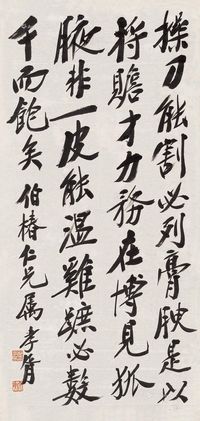 操刀能割必列膏腴是以
將贍才力務在博見狐
腋非一皮能溫雞蹠必數
千而飽矣 伯椿仁兄屬 孝胥